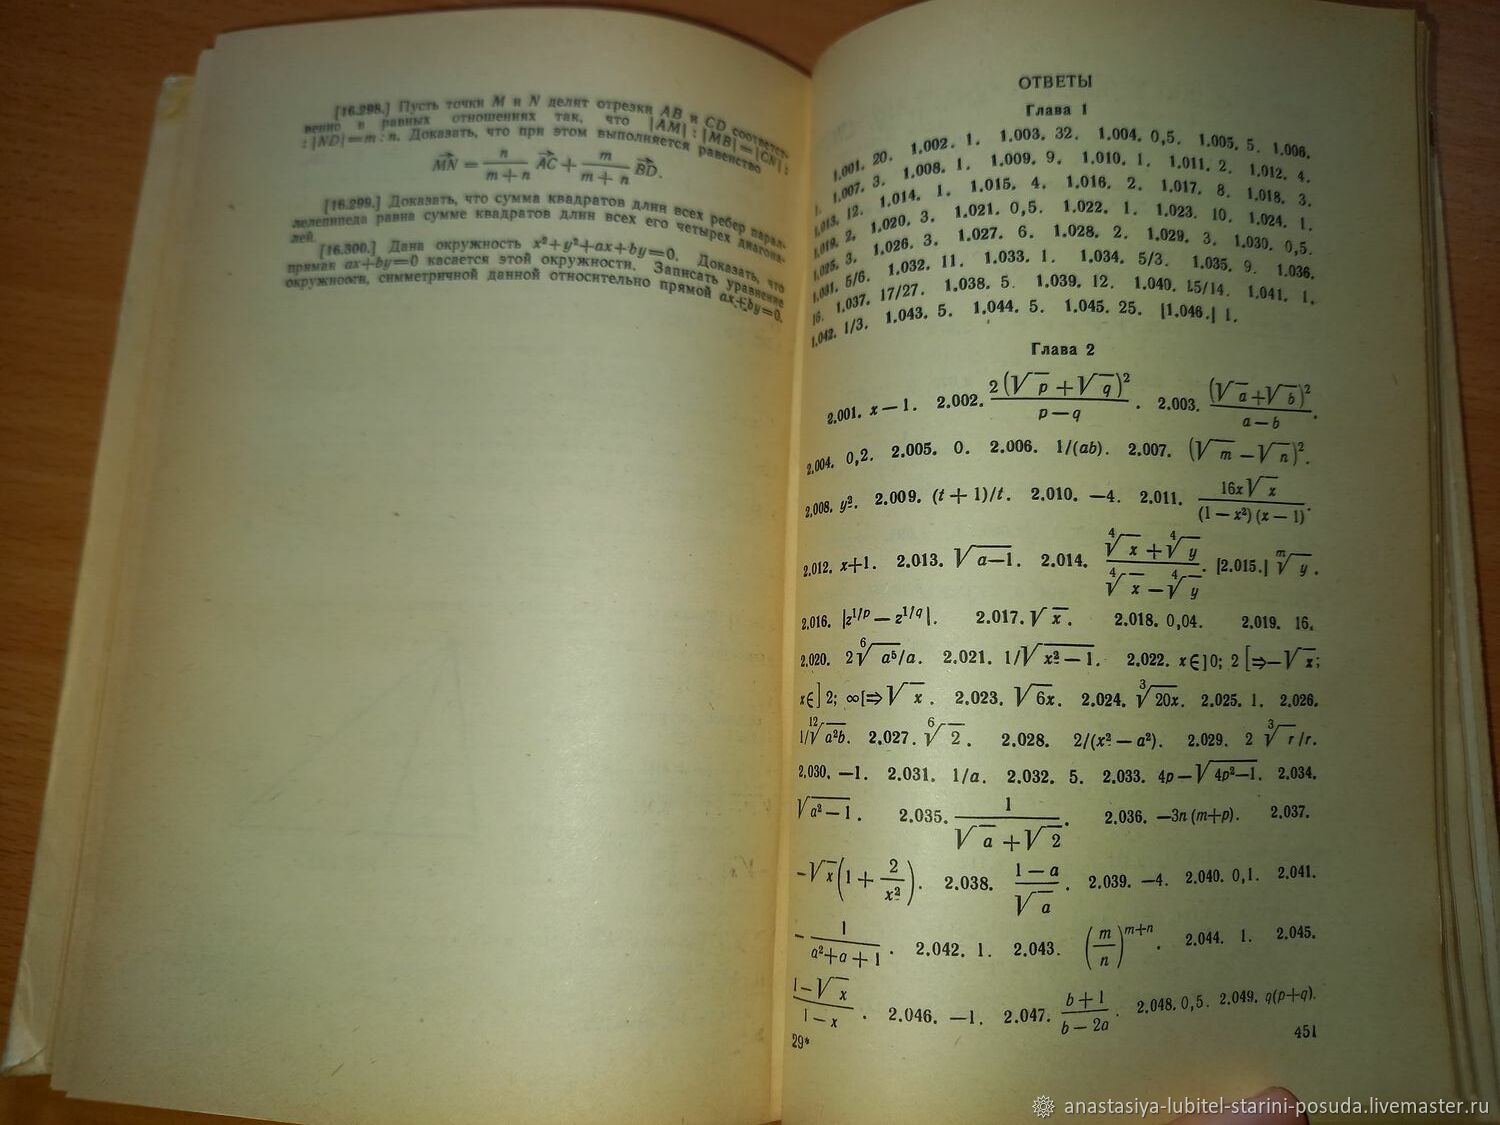 [16.298.] Пусть точки M и N делят отрезки AB и CD соответст-
венно в равных отношениях так, что |AM| : |MB|=|CN| :
: |ND|=m : n. Доказать, что при этом выполняется равенство
MN = n/(m+n) AC + m/(m+n) BD.
[16.299.] Доказать, что сумма квадратов длин всех ребер парал-
лелепипеда равна сумме квадратов длин всех его четырех диагона-
лей.
[16.300.] Дана окружность x²+y²+ax+by=0. Доказать, что
прямая ax+by=0 касается этой окружности. Записать уравнение
окружности, симметричной данной относительно прямой ax+by=0.
ОТВЕТЫ
Глава 1
1.001. 20. 1.002. 1. 1.003. 32. 1.004. 0,5. 1.005. 5. 1.006.
1. 1.007. 3. 1.008. 1. 1.009. 9. 1.010. 1. 1.011. 2. 1.012. 4.
1.013. 12. 1.014. 1. 1.015. 4. 1.016. 2. 1.017. 8. 1.018. 3.
1.019. 2. 1.020. 3. 1.021. 0,5. 1.022. 1. 1.023. 10. 1.024. 1.
1.025. 3. 1.026. 3. 1.027. 6. 1.028. 2. 1.029. 3. 1.030. 0,5.
1.031. 5/6. 1.032. 11. 1.033. 1. 1.034. 5/3. 1.035. 9. 1.036.
16. 1.037. 17/27. 1.038. 5. 1.039. 12. 1.040. 15/14. 1.041. 1.
1.042. 1/3. 1.043. 5. 1.044. 5. 1.045. 25. [1.046.] 1.
Глава 2
2.001. x—1. 2.002. 2(√p+√q)²/(p—q). 2.003. (√a+√b)²/(a—b).
2.004. 0,2. 2.005. 0. 2.006. 1/(ab). 2.007. (√m—√n)².
2.008. y². 2.009. (t+1)/t. 2.010. —4. 2.011. 16x√x/((1—x²)(x—1)).
2.012. x+1. 2.013. √(a—1). 2.014. (⁴√x+⁴√y)/(⁴√x—⁴√y). [2.015.] ᵐ√y.
2.016. |z^(1/p)—z^(1/q)|. 2.017. √x. 2.018. 0,04. 2.019. 16.
2.020. 2 ⁶√(a⁵)/a. 2.021. 1/√(x²—1). 2.022. x∈]0; 2[⇒—√x;
x∈]2; ∞[⇒√x. 2.023. √(6x). 2.024. ³√(20x). 2.025. 1. 2.026.
1/¹²√(a²b). 2.027. ⁶√2. 2.028. 2/(x²—a²). 2.029. 2 ³√r/r.
2.030. —1. 2.031. 1/a. 2.032. 5. 2.033. 4p—√(4p²—1). 2.034.
√(a²—1). 2.035. 1/(√a+√2). 2.036. —3n(m+p). 2.037.
—√x(1+2/x²). 2.038. (1—a)/√a. 2.039. —4. 2.040. 0,1. 2.041.
—1/(a²+a+1). 2.042. 1. 2.043. (m/n)^(m+n). 2.044. 1. 2.045.
(1—√x)/(1—x). 2.046. —1. 2.047. (b+1)/(b—2a). 2.048. 0,5. 2.049. q(p+q).
29*
451
anastasiya-lubitel-starini-posuda.livemaster.ru